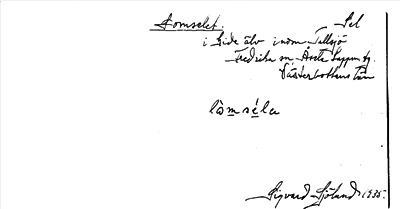 Lomselet. Sel
i Gide älv inom Tallsjö
Fredrika sn Åsele lappm.
Västerbottens län
lòmséla
Sigvard Sjölund 1935.